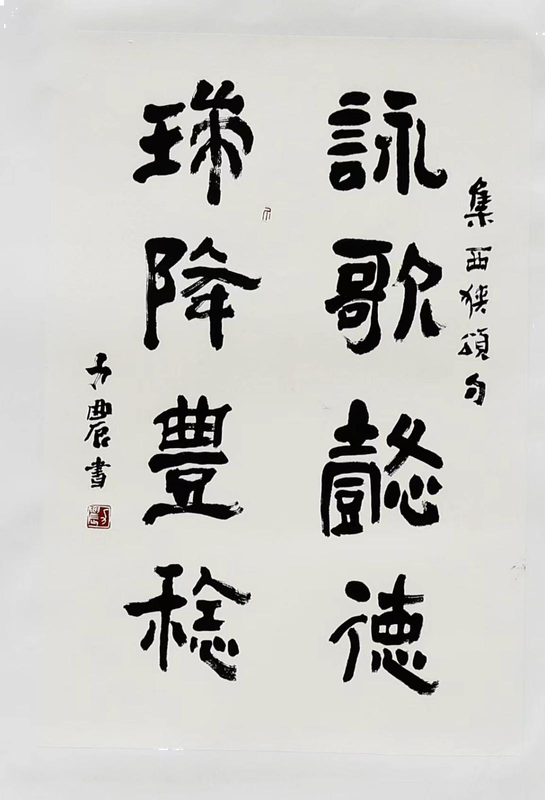 集西狹頌句
詠歌懿德
瑞降豊稔
方農書